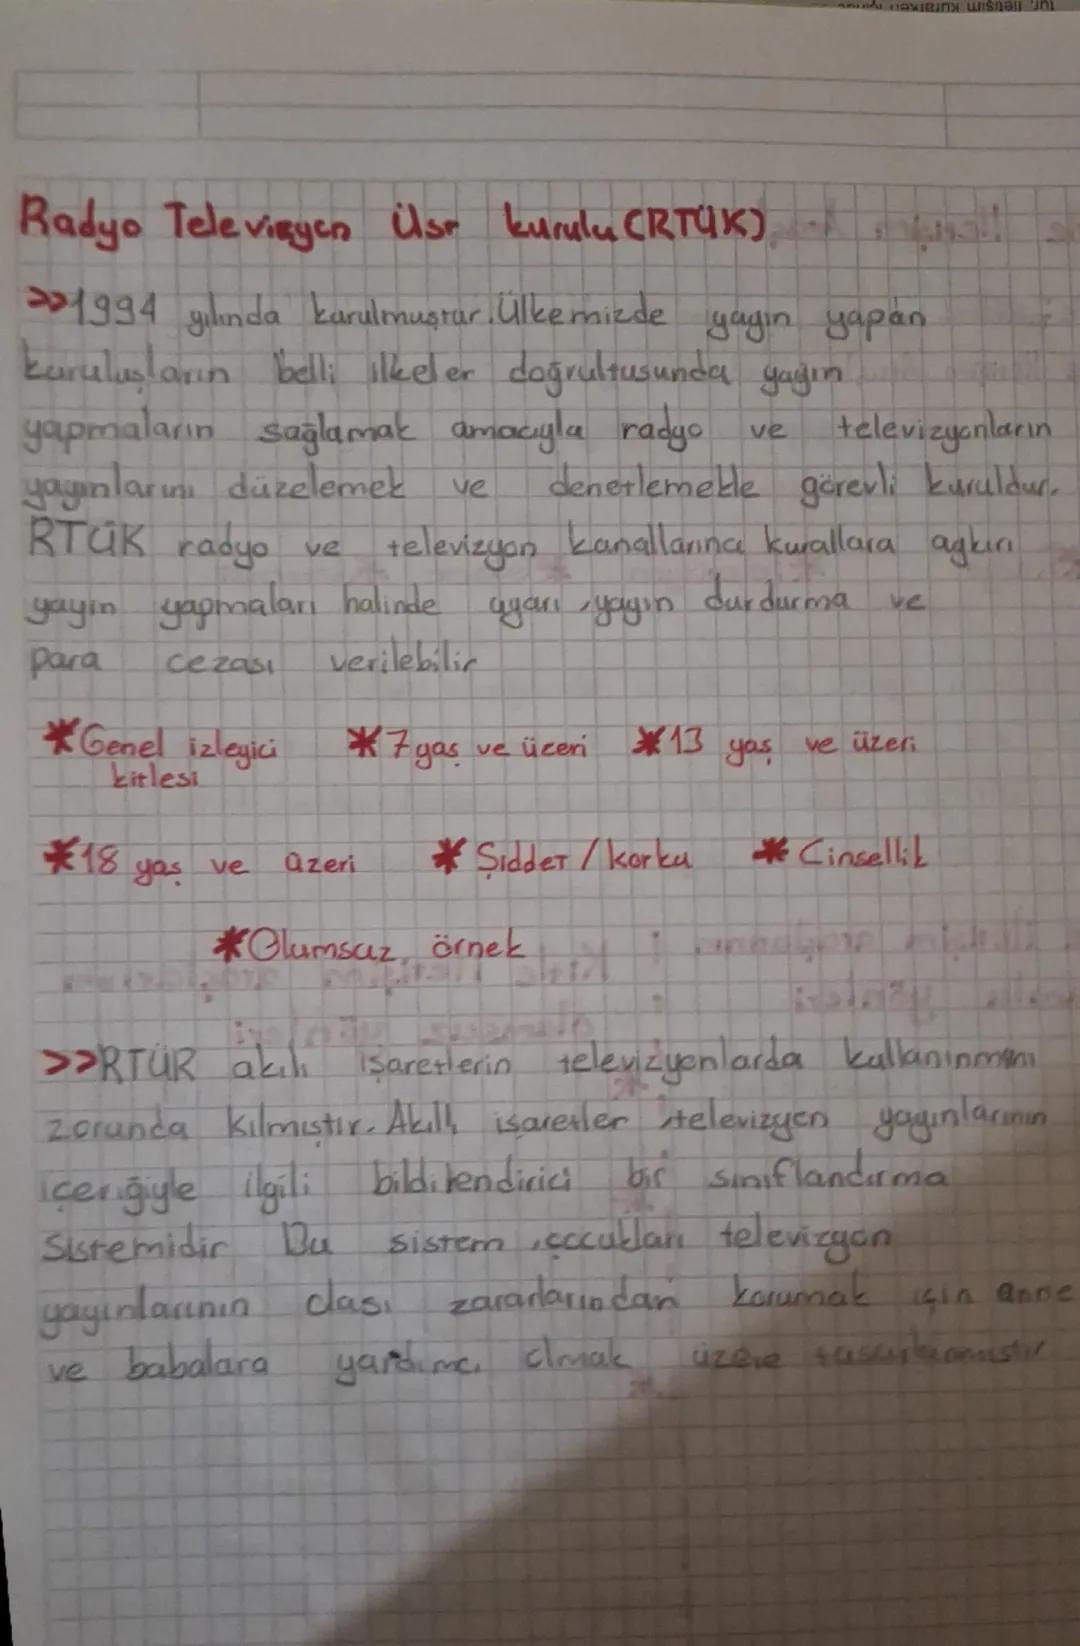 Radyo Televizyon Üst kurulu (RTÜK)
>>1994 yılında kurulmuştur. Ülkemizde yayın yapan
kuruluşların belli ilkeler doğrultusunda yayın
yapmaların sağlamak amacıyla radyo ve televizyonların
yayınlarını düzelemek ve denetlemekle görevli kuruldur.
RTÜK radyo ve televizyon kanallarınca kurallara aykırı
yayın yapmaları halinde uyarı, yayın durdurma ve
para cezası verilebilir
*Genel izleyici *7 yaş ve üzeri *13 yaş ve üzeri
kitlesi
*18 yaş ve üzeri *Şiddet / korku *Cinsellik
*Olumsuz örnek
>>RTÜR akılı işaretlerin televizyonlarda kullanınmını
zorunda kılmıştır. Akıllı işaretler televizyon yayınlarının
içeriğiyle ilgili bildilendirici bir sınıflandırma
sistemidir Bu sistem, çocukları televizyon
yayınlarının olası zararlarından korumak için anne
ve babalara yardımcı olmak üzere